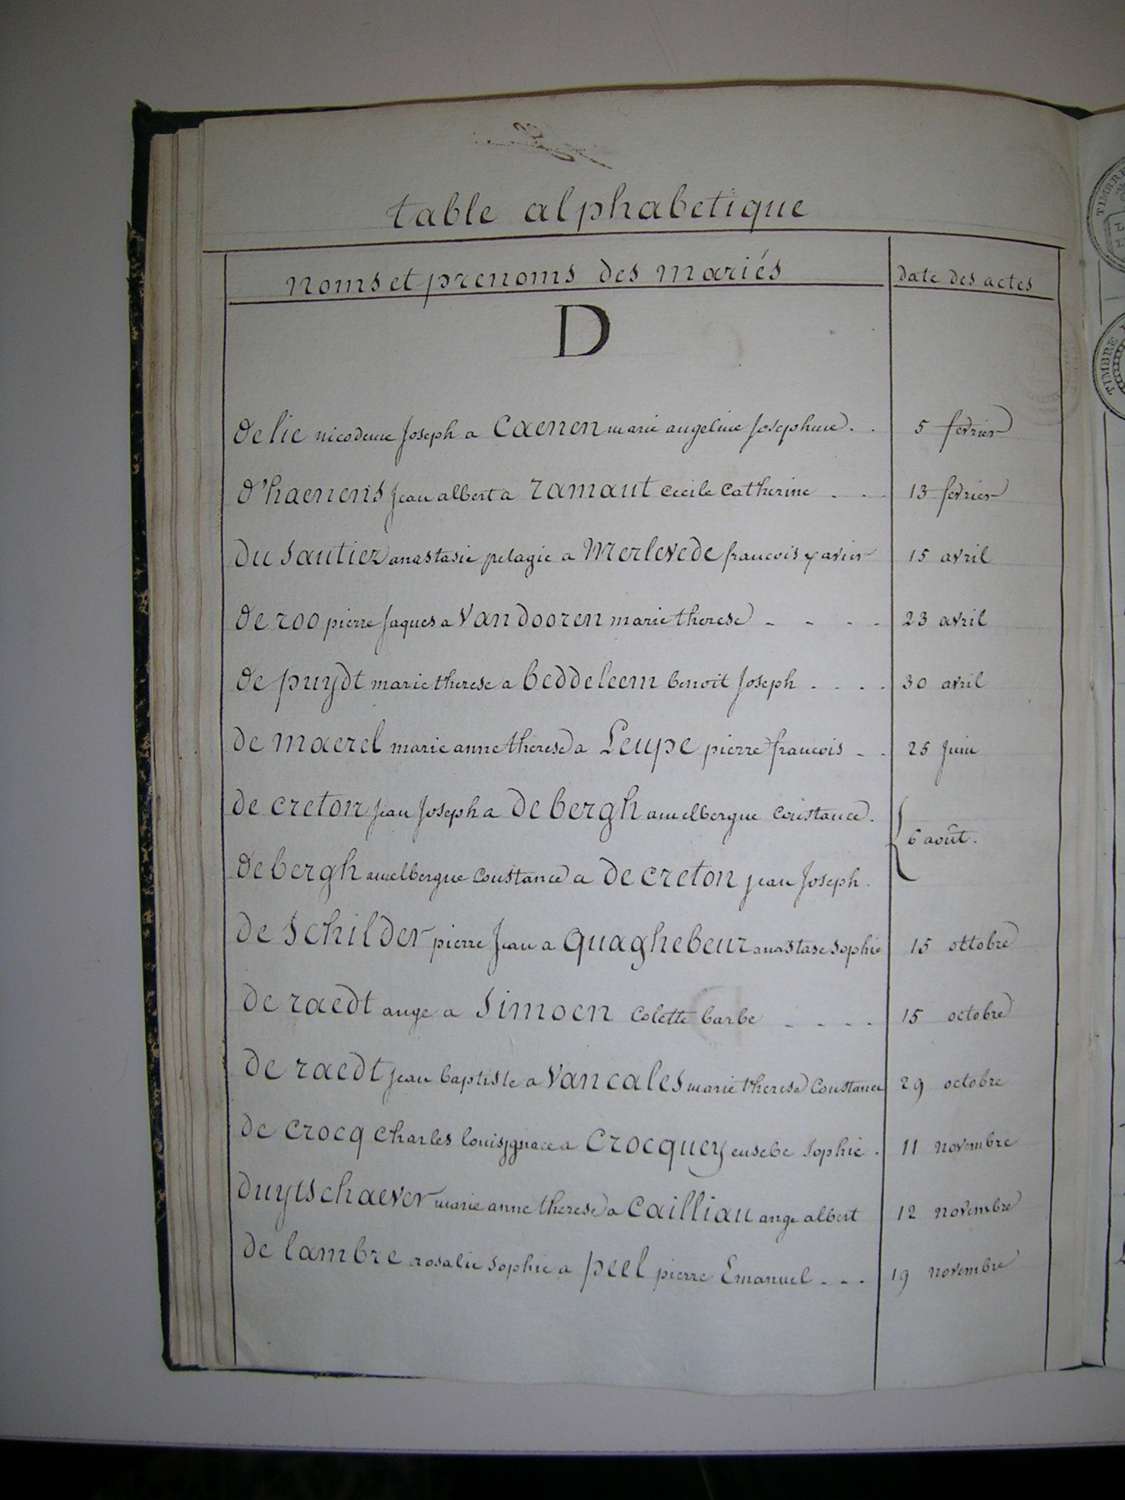 table alphabetique
noms et prenoms des mariés date des actes
D
delie nicodeme Joseph a Caenen marie angeline Josephine . . 5 fevrier
d'haenens jean albert a ramaut Cecile Catherine . . . 13 fevrier
du Sautiez anastasie pelagie a Merlevede francois xavier 15 avril
de roo pierre Jaques a Vandooren marie therese - - - - 23 avril
de puydt marie therese a beddeleem benoit Joseph . . . . 30 avril
de maerel marie anne therese a Leupe pierre francois - - 25 juin
de creton jean Joseph a de bergh amelbergue Constance.
6 août.
de bergh amelbergue Constance a de creton jean Joseph.
de Schilder pierre Jean a quaghebeur anastase sophie 15 octobre
de raedt ange a Simoen Colette barbe - - - - 15 octobre
de raedt jean baptiste a Vancales marie therese Constance 29 octobre
de crocq Charles louis ygnace a Crocquey eusebe sophie . 11 novembre
duytschaever marie anne therese a Cailliau ange albert 12 novembre
de lambre rosalie sophie a peel pierre Emanuel - - - 19 novembre
TIMBRE
TIMBRE